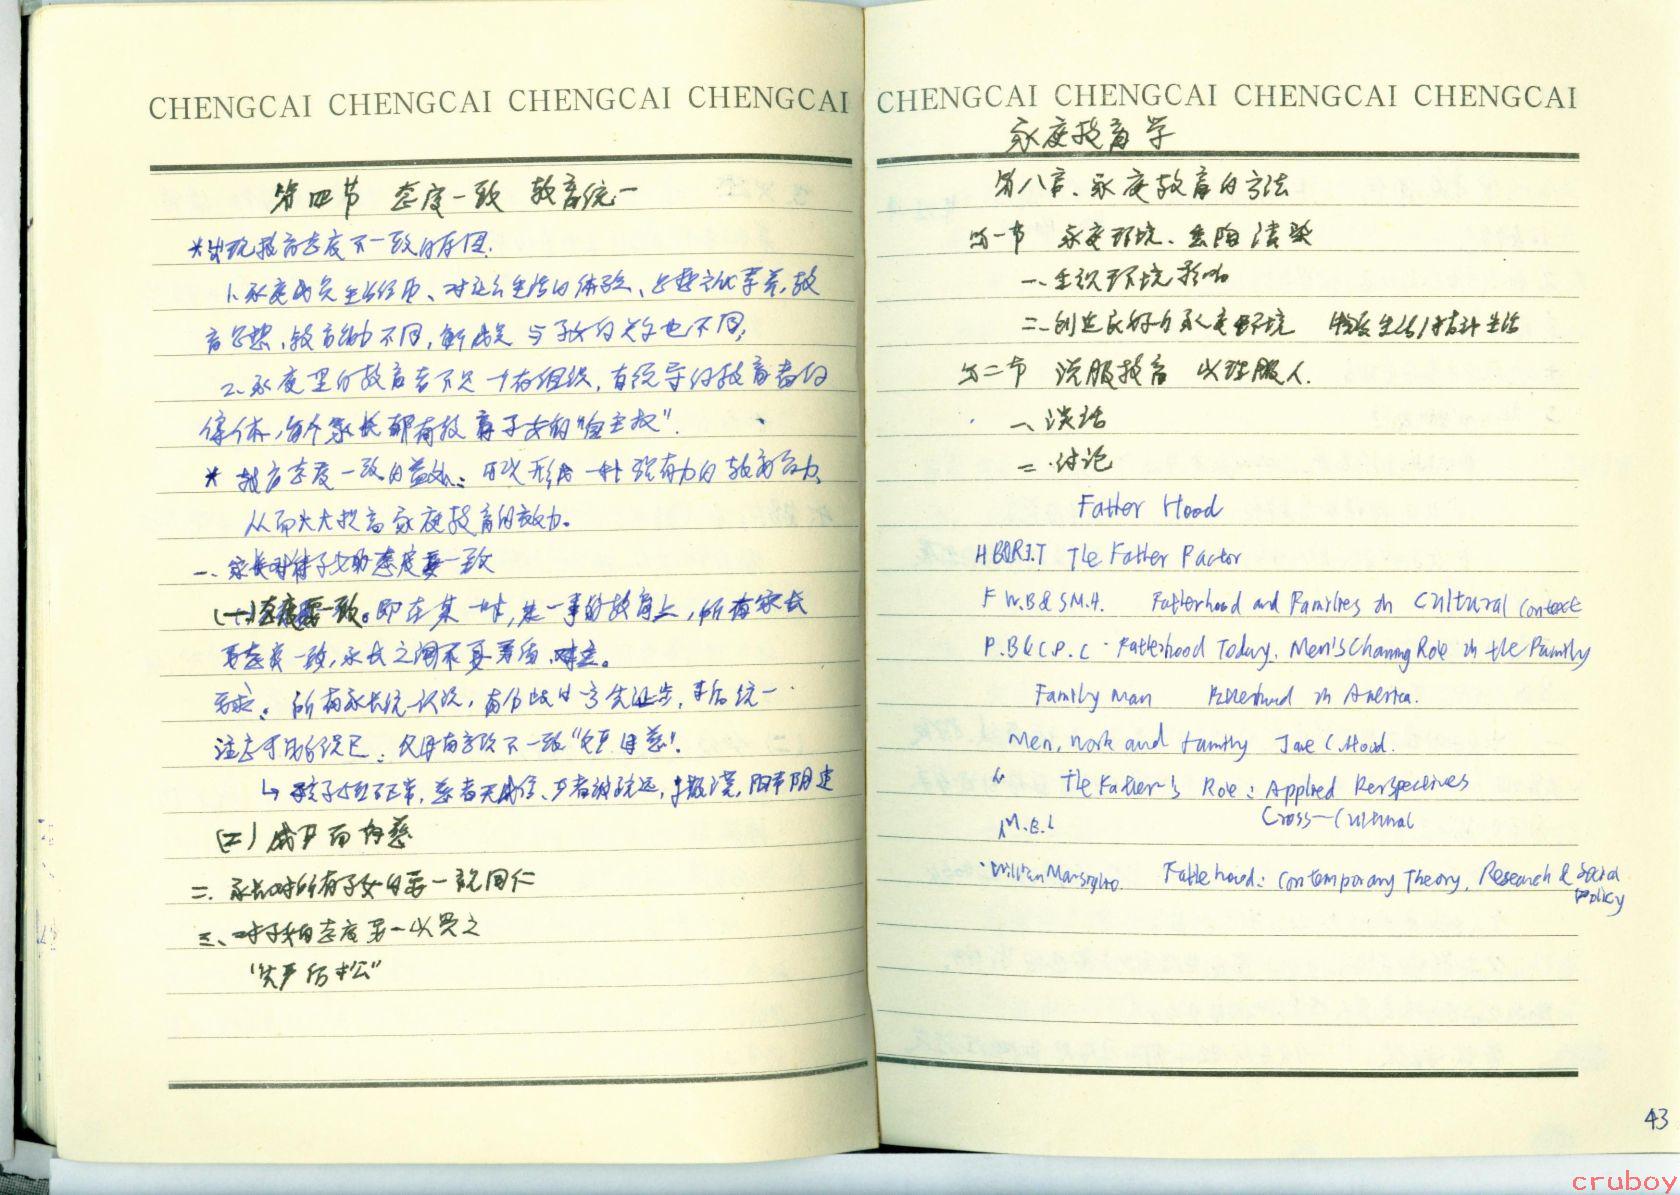 CHENGCAI CHENGCAI CHENGCAI CHENGCAI
第四节 态度一致 教育统一
*出现教育态度不一致的原因.
1.家庭成员生活经历、对社会生活的体验、思想文化素养,教
育思想、教育能力不同,家庭成员与子女的关系也不同,
2.家庭里的教育者不是一个有组织,有领导的教育者的
集体,每个家长都有教育子女的"自主权".
* 教育态度一致的益处:可以形成一种强有力的教育合力,
从而大大提高家庭教育的效力。
一、家长对待子女的态度要一致
(一)态度要一致。即在某一时,某一事的教育上,所有家长
要态度一致,家长之间不要矛盾.对立。
要求:所有家长统一认识,有分歧时 先让步,事后统一.
注意可能的误区:父母有意识不一致"父严母慈".
↳ 孩子 不正常,慈者无威信、严者被疏远, 撒谎,阳奉阴违
(二)威严而有慈
二.家长对所有子女的要一视同仁
三、对子女的态度要一以贯之
"先严后松"
CHENGCAI CHENGCAI CHENGCAI CHENGCAI
家庭教育学
第八章、家庭教育的方法
第一节 家庭环境、熏陶渍染
一.重视环境影响
二.创造良好的家庭环境 物质生活/精神生活
第二节 说服教育 以理服人.
一、谈话
二.讨论
Father Hood
The Father Factor
F W.B & S M.H. Fatherhood and Families in Cultural Context
P.B & C.P.C. Fatherhood Today. Men's Changing Role in the Family
Family Man Fatherhood in America.
Men, Work and Family Jane C. Hood.
The Father's Role: Applied Perspectives
M.E.L Cross—Cultural
·William Marsiglio. Fatherhood: Contemporary Theory, Research & Social
Policy
43
cruboy